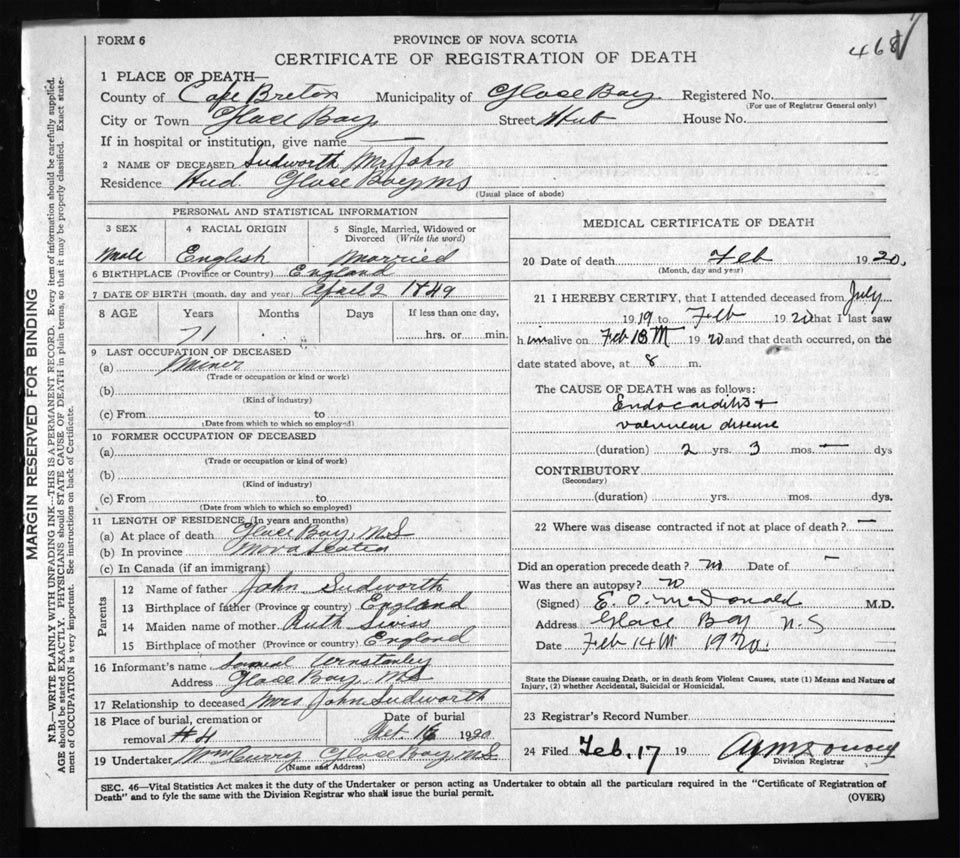 468
FORM 6
PROVINCE OF NOVA SCOTIA
CERTIFICATE OF REGISTRATION OF DEATH
MARGIN RESERVED FOR BINDING
N.B.—WRITE PLAINLY WITH UNFADING INK—THIS IS A PERMANENT RECORD. Every item of information should be carefully supplied.
AGE should be stated EXACTLY. PHYSICIANS should STATE CAUSE OF DEATH in plain terms, so that it may be properly classified. Exact state-
ment of OCCUPATION is very important. See instructions on back of Certificate.
1 PLACE OF DEATH—
County of Cape Breton Municipality of Glace Bay Registered No.
(For use of Registrar General only)
City or Town Glace Bay Street Hub House No.
If in hospital or institution, give name —
2 NAME OF DECEASED Sudworth Mr John
Residence Hud. Glace Bay NS
(Usual place of abode)
PERSONAL AND STATISTICAL INFORMATION
3 SEX 4 RACIAL ORIGIN 5 Single, Married, Widowed or Divorced (Write the word)
Male English Married
6 BIRTHPLACE (Province or Country) England
7 DATE OF BIRTH (month, day and year) April 2 1849
8 AGE Years Months Days If less than one day,
71 hrs. or min.
9 LAST OCCUPATION OF DECEASED
(a) Miner
(Trade or occupation or kind or work)
(b)
(Kind of industry)
(c) From to
(Date from which to which so employed)
10 FORMER OCCUPATION OF DECEASED
(a)
(Trade or occupation or kind of work)
(b)
(Kind of industry)
(c) From to
(Date from which to which so employed)
11 LENGTH OF RESIDENCE (In years and months)
(a) At place of death Glace Bay, N.S
(b) In province Nova Scotia
(c) In Canada (if an immigrant)
Parents
12 Name of father John Sudworth
13 Birthplace of father (Province or country) England
14 Maiden name of mother Ruth
15 Birthplace of mother (Province or country) England
16 Informant's name Samuel
Address Glace Bay, NS
17 Relationship to deceased Mrs John Sudworth
18 Place of burial, cremation or Date of burial
removal #4 16 1920
19 Undertaker Glace Bay N.S.
(Name and Address)
MEDICAL CERTIFICATE OF DEATH
20 Date of death Feb 1920.
(Month, day and year)
21 I HEREBY CERTIFY, that I attended deceased from July
1919 to Feb 1920 that I last saw
him alive on Feb 13th 1920 and that death occurred, on the
date stated above, at 8 m.
The CAUSE OF DEATH was as follows:
Endocarditis +
valvular disease
(duration) 2 yrs. 3 mos. — dys
CONTRIBUTORY
(Secondary)
(duration) yrs. mos. dys.
22 Where was disease contracted if not at place of death? —
Did an operation precede death? no Date of —
Was there an autopsy? no
(Signed) E. O. McDonald M.D.
Address Glace Bay N.S
Date Feb 14th 1920.
State the Disease causing Death, or in death from Violent Causes, state (1) Means and Nature of
Injury, (2) whether Accidental, Suicidal or Homicidal.
23 Registrar's Record Number
24 Filed Feb. 17 19
Division Registrar
SEC. 46—Vital Statistics Act makes it the duty of the Undertaker or person acting as Undertaker to obtain all the particulars required in the "Certificate of Registration of
Death" and to fyle the same with the Division Registrar who shall issue the burial permit.
(OVER)